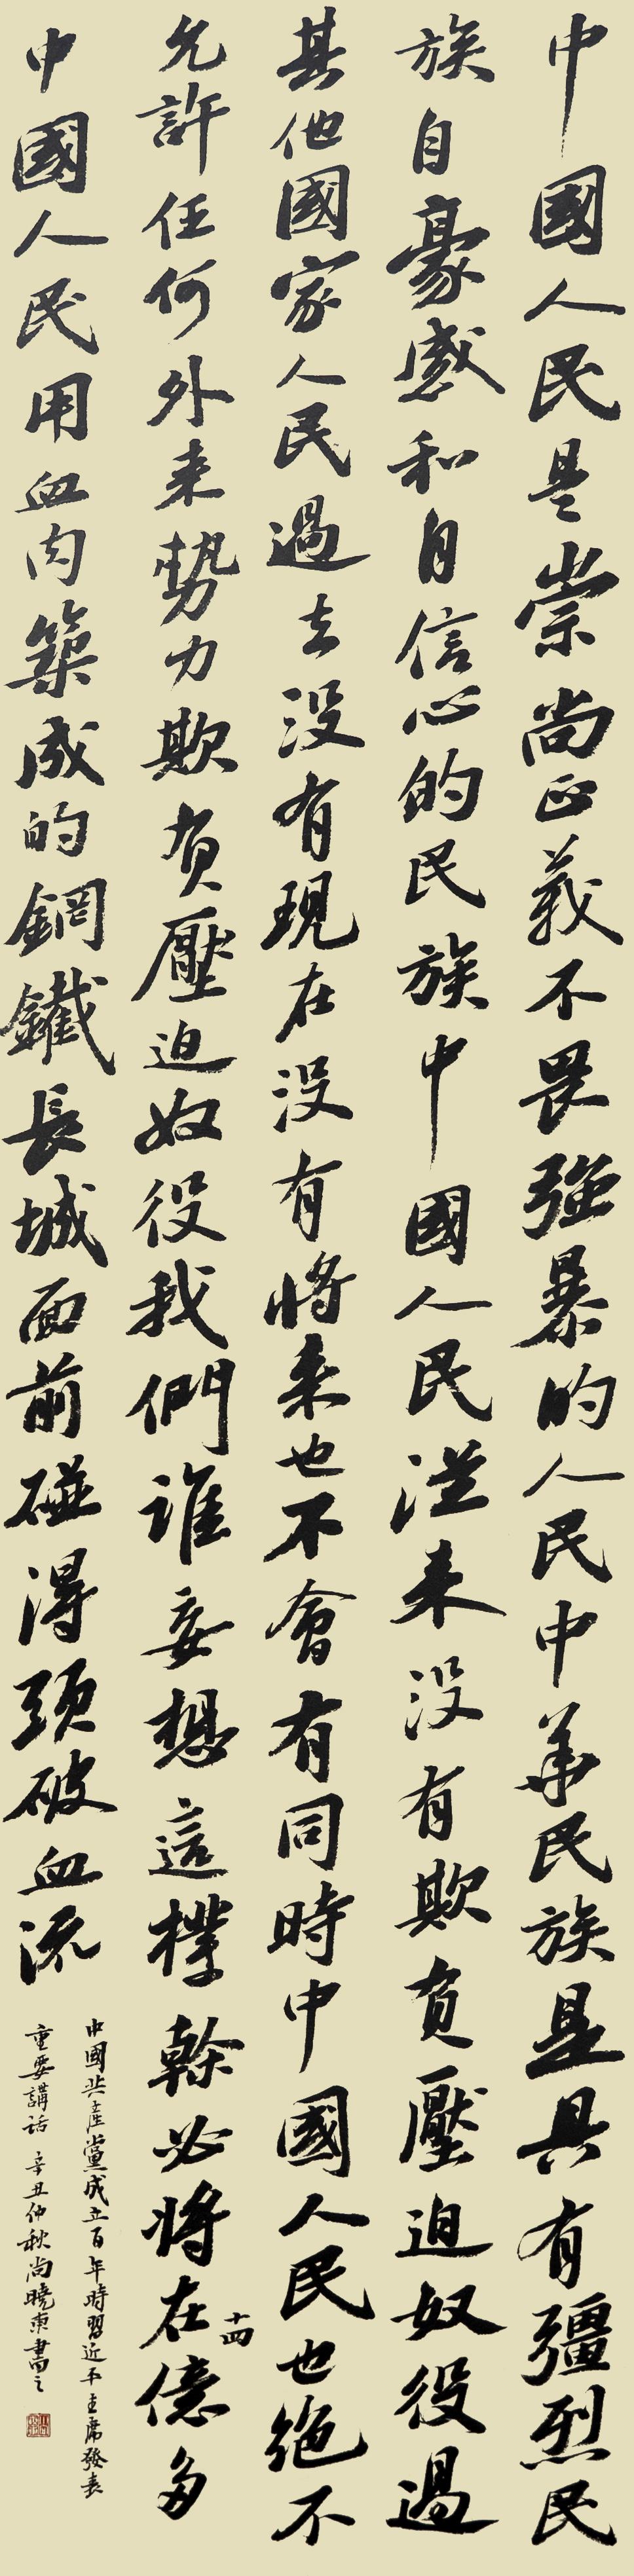 中國人民是崇尚正義不畏強暴的人民中華民族是具有彊烈民
族自豪感和自信心的民族中國人民從来没有欺負壓迫奴役過
其他國家人民過去没有現在没有將来也不會有同時中國人民也絶不
允許任何外来勢力欺負壓迫奴役我們誰妄想這樣幹必將在
十四
億多
中國人民用血肉築成的鋼鐵長城面前碰得頭破血流
中國共產黨成立百年時習近平主席發表
重要講話 辛丑仲秋尚曉東書之